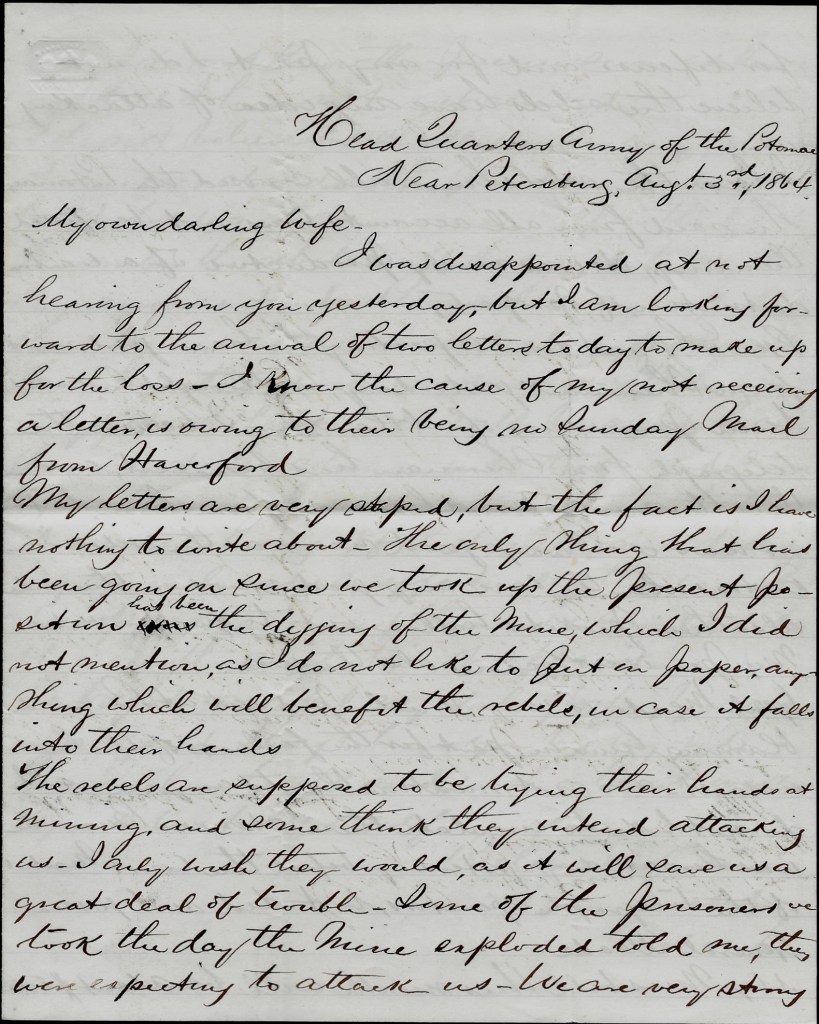 Head Quarters Army of the Potomac
Near Petersburg, Augt. 3rd, 1864.
My own darling Wife-
I was disappointed at not
hearing from you yesterday, but I am looking for-
ward to the arrival of two letters today to make up
for the loss - I know the cause of my not receiving
a letter, is owing to their being no Sunday Mail
from Haverford
My letters are very stupid, but the fact is I have
nothing to write about - The only thing that has
been going on since we took up the present po-
sition has been the digging of the Mine, which I did
not mention, as I do not like to put on paper, any-
thing which will benefit the rebels, in case it falls
into their hands
The rebels are supposed to be trying their hands at
mining, and some think they intend attacking
us - I only wish they would, as it will save us a
great deal of trouble - Some of the prisoners we
took the day the Mine exploded told me, they
were expecting to attack us - We are very strong